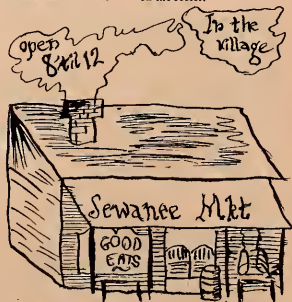 open
8 'til 12
In the
Village
Sewanee Mkt
GOOD
EATS